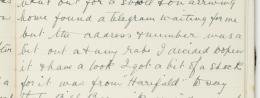 out for a stroll & on arriving
home found a telegram waiting for me
but the address & number was a
bit out & at any rate I decided to open
it & have a look I got a bit of a shock
for it was from "Harifald" to say